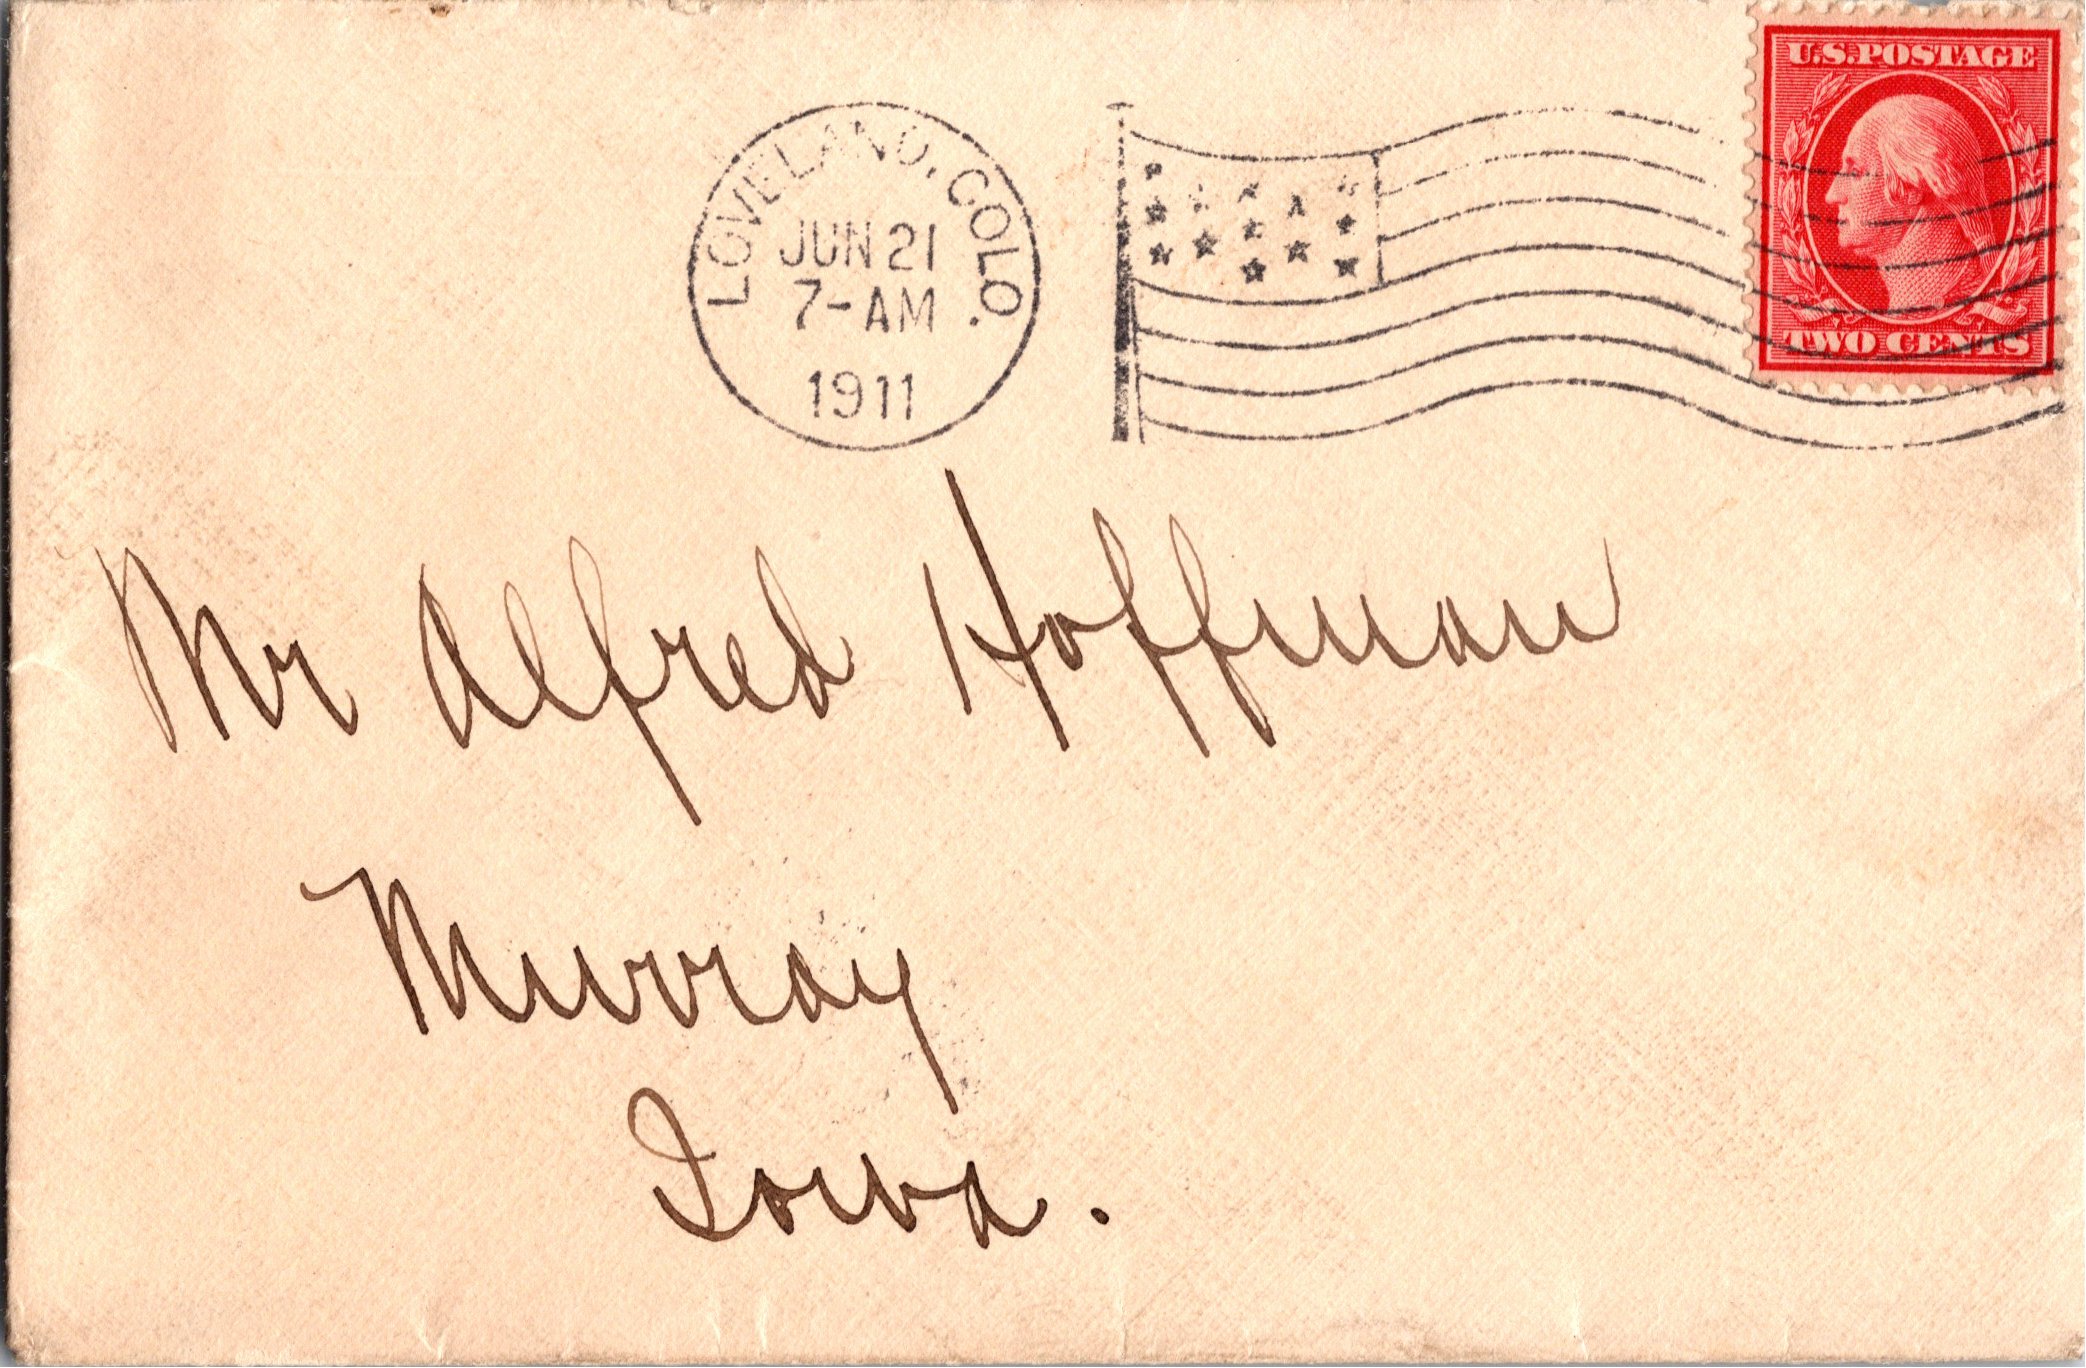 U.S. POSTAGE
TWO CENTS
LOVELAND, COLO.
JUN 21
7-AM
1911
Mr Alfred Hoffman
Murray
Iowa.